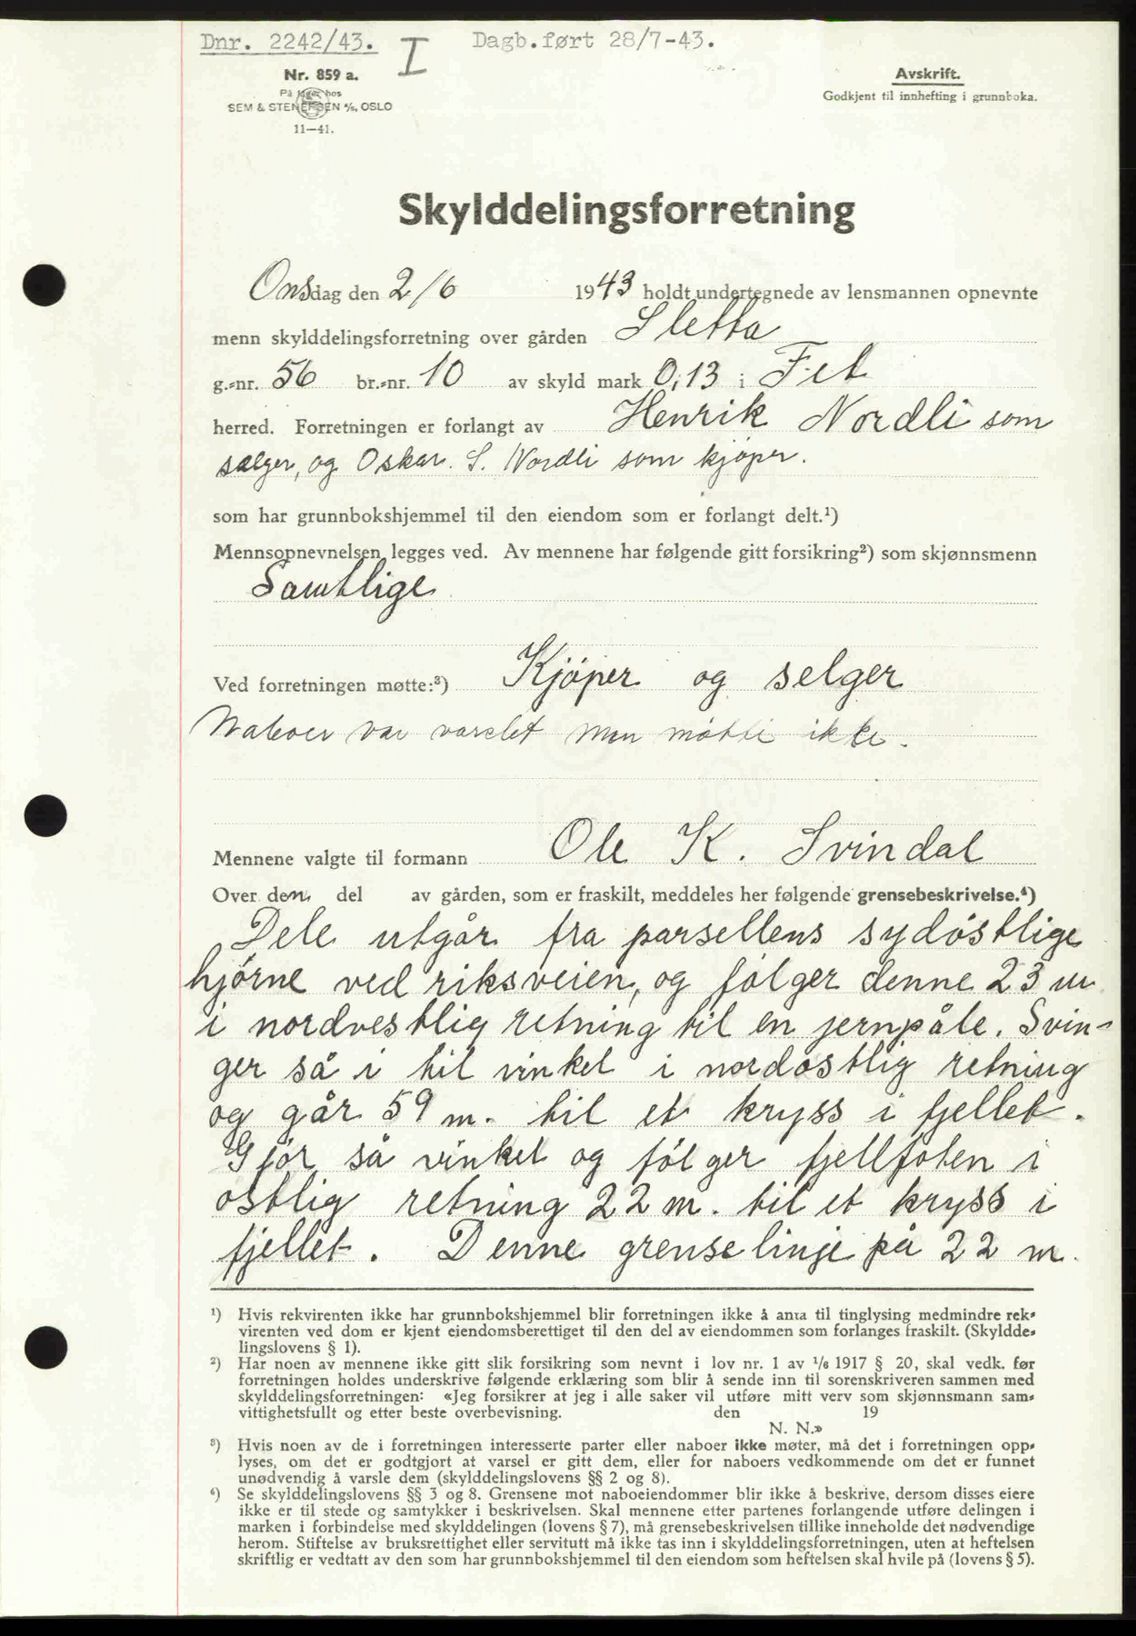 Dnr. 2242/43. I Dagb.ført 28/7-43.
Nr. 859 a.
På lager hos
SEM & STENERSEN A/S, OSLO
11—41.
Avskrift.
Godkjent til innhefting i grunnboka.
Skylddelingsforretning
Onsdag den 2/6 1943 holdt undertegnede av lensmannen opnevnte
menn skylddelingsforretning over gården Sletta
g.-nr. 56 br.-nr. 10 av skyld mark 0,13 i Fet
herred. Forretningen er forlangt av Henrik Nordli som
sælger, og Oskar S. Nordli som kjøper.
som har grunnbokshjemmel til den eiendom som er forlangt delt.¹)
Mennsopnevnelsen legges ved. Av mennene har følgende gitt forsikring²) som skjønnsmenn
Samtlige
Ved forretningen møtte:³) Kjøper og selger
Naboer var varslet men møtte ikke.
Mennene valgte til formann Ole K. Svindal
Over den del av gården, som er fraskilt, meddeles her følgende grensebeskrivelse.⁴)
Dele utgår fra parsellens sydøstlige
hjørne ved riksveien, og følger denne 23 m
i nordvestlig retning til en jernpåle. Svin-
ger så i til vinkel i nordøstlig retning
og går 59 m. til et kryss i fjellet.
Gjør så vinkel og følger fjellfoten i
østlig retning 22 m. til et kryss i
fjellet. Denne grenselinje på 22 m.
¹) Hvis rekvirenten ikke har grunnbokshjemmel blir forretningen ikke å anta til tinglysing medmindre rek-
virenten ved dom er kjent eiendomsberettiget til den del av eiendommen som forlanges fraskilt. (Skyldde-
lingslovens § 1).
²) Har noen av mennene ikke gitt slik forsikring som nevnt i lov nr. 1 av 1/6 1917 § 20, skal vedk. før
forretningen holdes underskrive følgende erklæring som blir å sende inn til sorenskriveren sammen med
skylddelingsforretningen: «Jeg forsikrer at jeg i alle saker vil utføre mitt verv som skjønnsmann sam-
vittighetsfullt og etter beste overbevisning. den 19
N. N.»
³) Hvis noen av de i forretningen interesserte parter eller naboer ikke møter, må det i forretningen opp-
lyses, om det er godtgjort at varsel er gitt dem, eller for naboers vedkommende om det er funnet
unødvendig å varsle dem (skylddelingslovens §§ 2 og 8).
⁴) Se skylddelingslovens §§ 3 og 8. Grensene mot naboeiendommer blir ikke å beskrive, dersom disses eiere
ikke er til stede og samtykker i beskrivelsen. Skal mennene etter partenes forlangende utføre delingen i
marken i forbindelse med skylddelingen (lovens § 7), må grensebeskrivelsen tillike inneholde det nødvendige
herom. Stiftelse av bruksrettighet eller servitutt må ikke tas inn i skylddelingsforretningen, uten at heftelsen
skriftlig er vedtatt av den som har grunnbokshjemmel til den eiendom som heftelsen skal hvile på (lovens § 5).